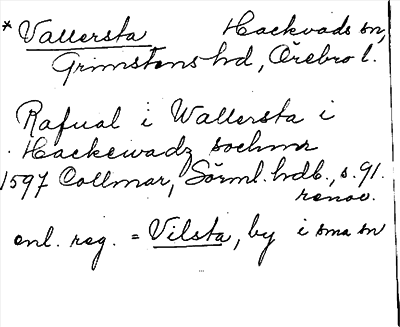 * Vallersta Hackvads sn,
Grimstens hd, Örebro l.
Rafual i Wallersta i
Hackewadz sochnn
1597 Collmar, Sörml. hdb., s. 91.
renov.
enl. reg. = Vilsta, by i sma sn